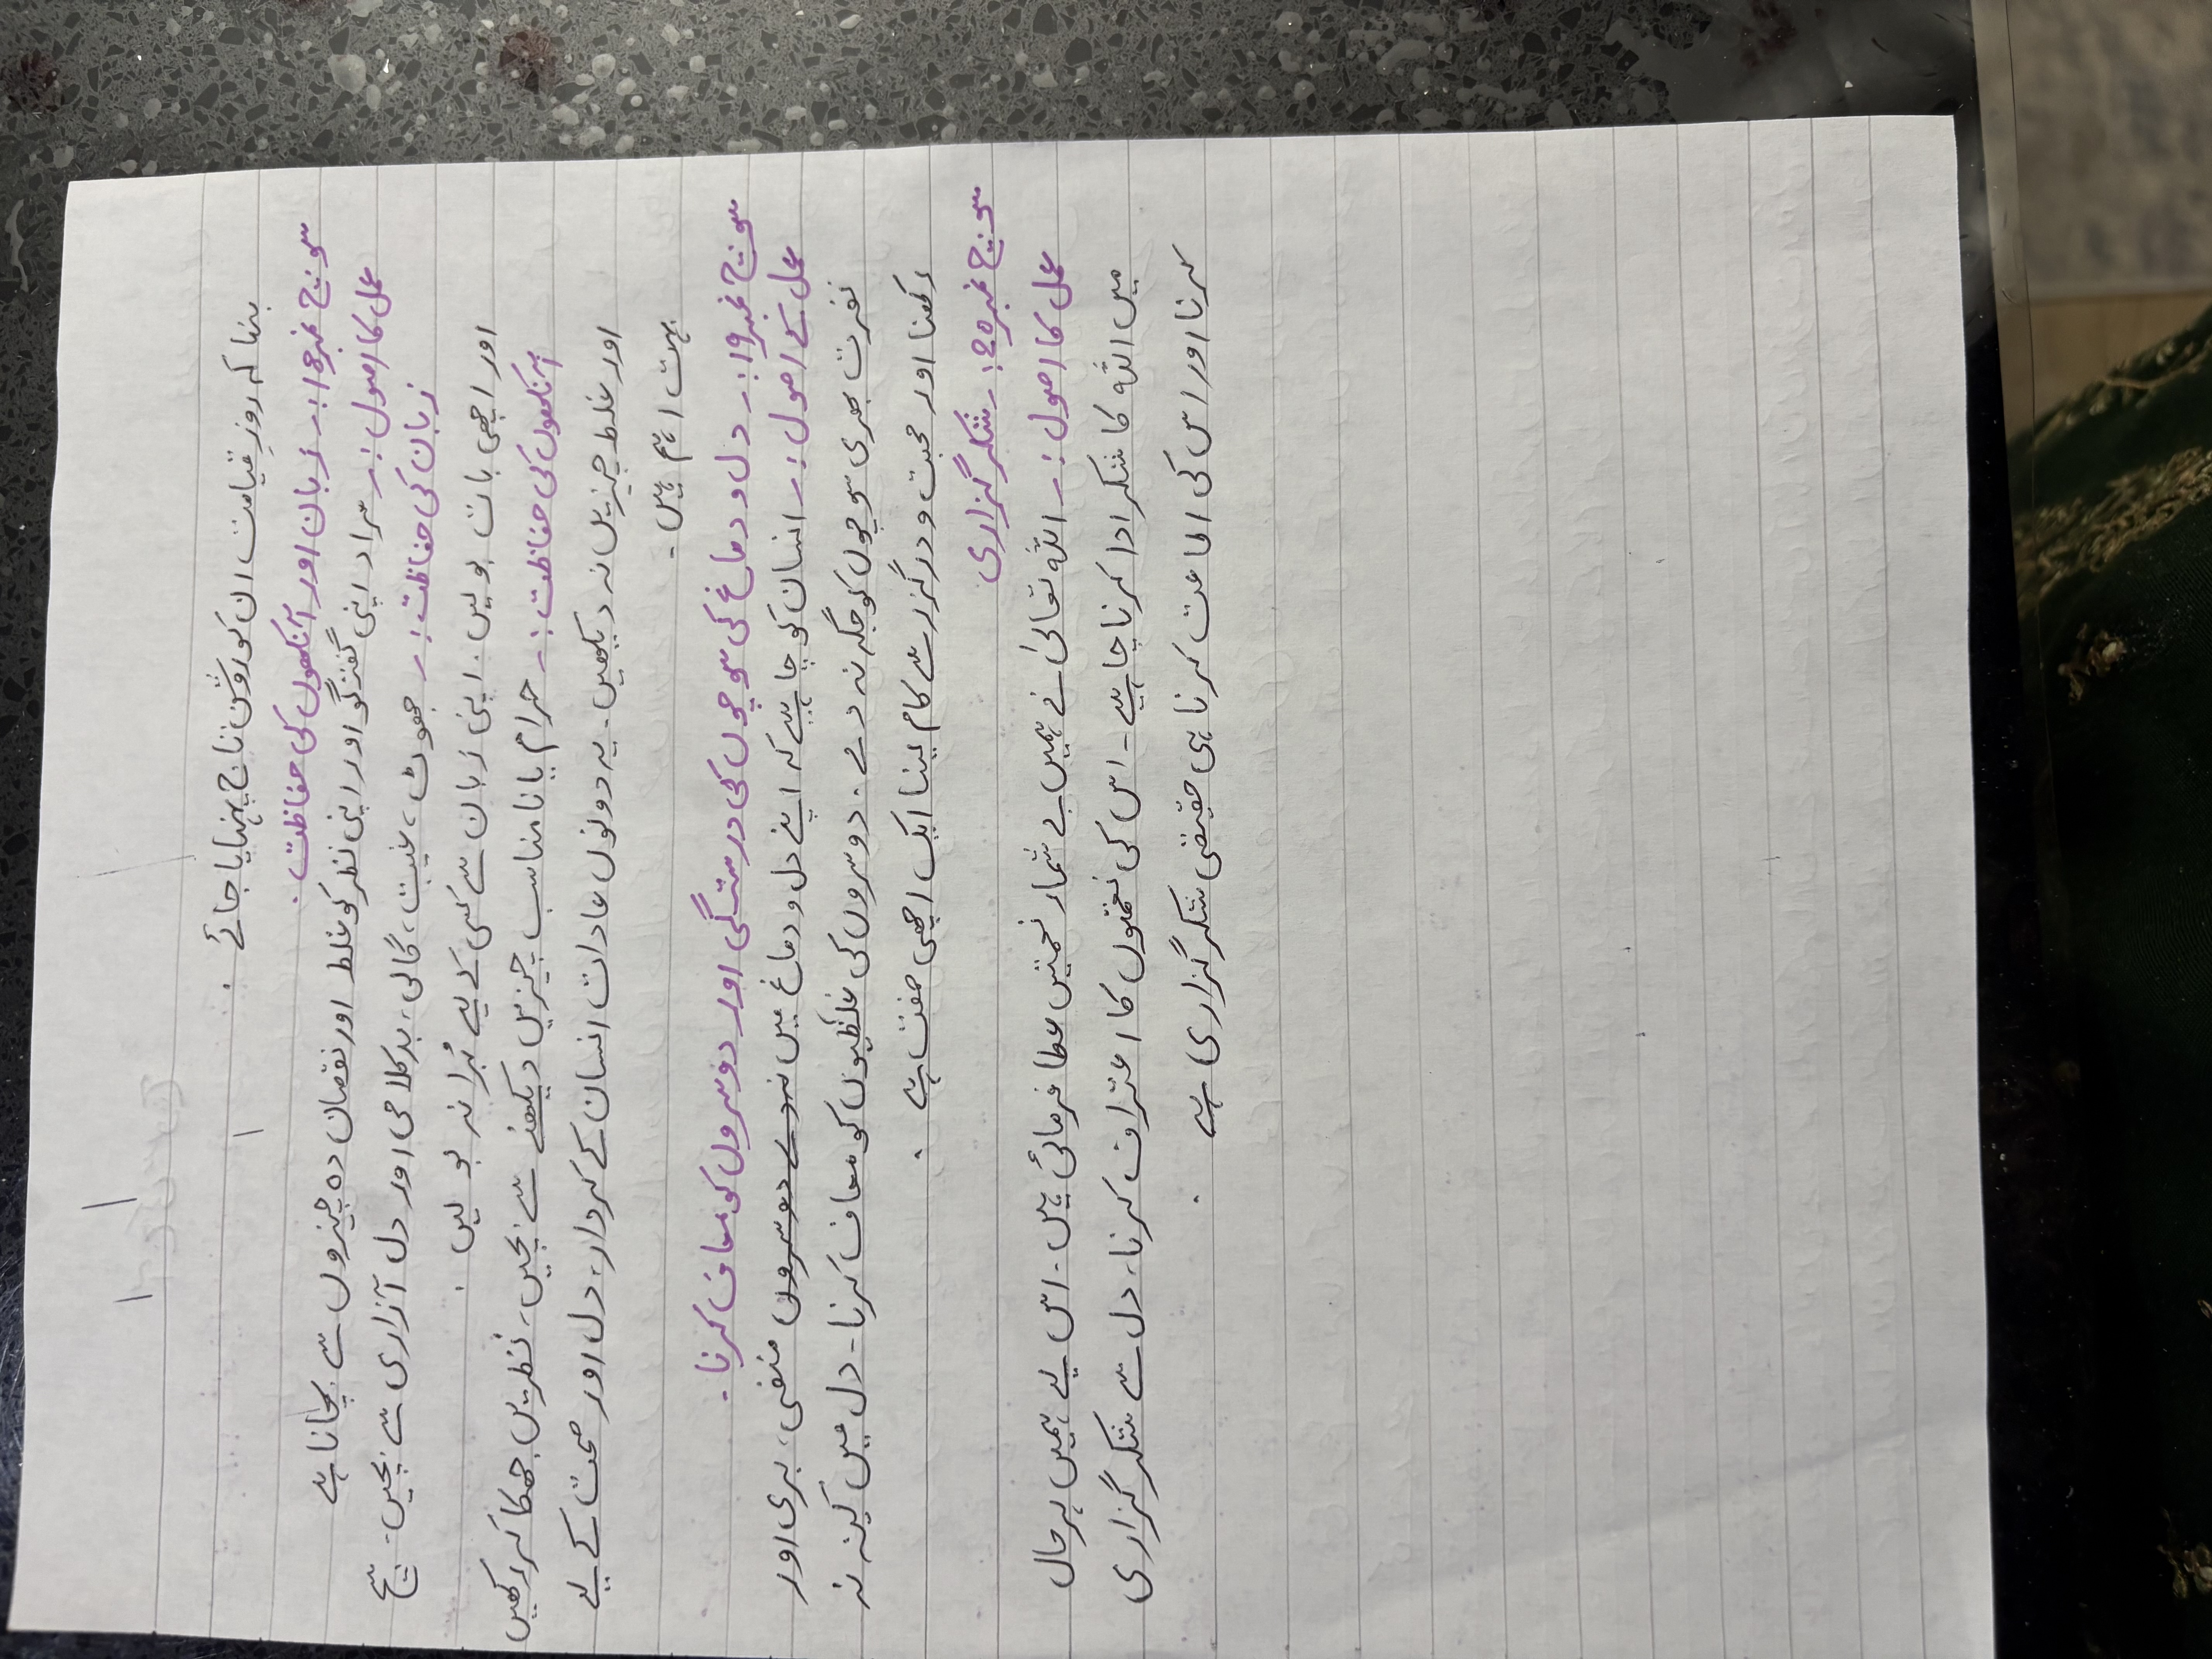 بنا کہ روزِ قیامت ان کو روشن تاج پہنایا جائے۔
سوئچ نمبر 18:۔ زبان اور آنکھوں کی حفاظت۔
عمل کا اصول:۔ مراد اپنی گفتگو اور اپنی نظر کو غلط اور نقصان دہ چیزوں سے بچانا ہے
زبان کی حفاظت:۔ جھوٹ، غیبت، گالی، بدکلامی اور دل آزاری سے بچیں۔ سچ
اور اچھی بات بولیں۔ اپنی زبان سے کسی کے لیے بُرا نہ بولیں۔
آنکھوں کی حفاظت:۔ حرام یا نامناسب چیزیں دیکھنے سے بچیں، نظریں جھکا کر رکھیں
اور غلط چیزیں نہ دیکھیں۔ یہ دونوں عادات انسان کے کردار، دل اور صحت کے لیے
بہت اہم ہیں۔
سوئچ نمبر 19:۔ دل و دماغ کی سوچوں کی درستگی اور دوسروں کو معاف کرنا۔
عمل کے اصول:۔ انسان کو چاہیے کہ اپنے دل و دماغ میں نہ دے دوسروں منفی، بری اور
نفرت بھری سوچوں کو جگہ نہ دے۔ دوسروں کی غلطیوں کو معاف کرنا۔ دل میں کینہ نہ
رکھنا اور محبت و درگزر سے کام لینا ایک اچھی صفت ہے۔
سوئچ نمبر 20:۔ شکر گزاری
عمل کا اصول:۔ اللہ تعالیٰ نے ہمیں بے شمار نعمتیں عطا فرمائی ہیں۔ اس لیے ہمیں ہر حال
میں اللہ کا شکر ادا کرنا چاہیے۔ اس کی نعمتوں کا اعتراف کرنا، دل سے شکر گزاری
کرنا اور اس کی اطاعت کرنا ہی حقیقی شکر گزاری ہے۔